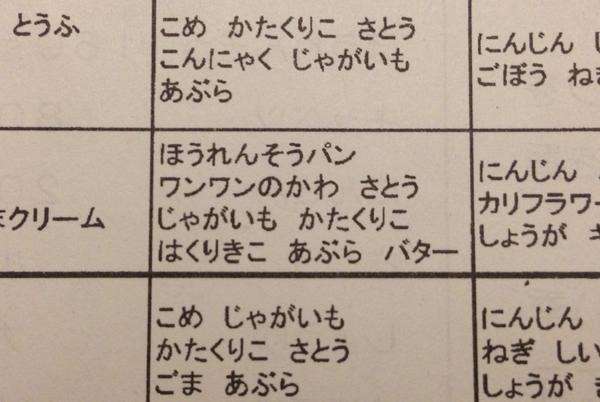 とうふ
こめ かたくりこ さとう
こんにゃく じゃがいも
あぶら
にんじん
ごぼう
クリーム
ほうれんそうパン
ワンワンのかわ さとう
じゃがいも かたくりこ
はくりきこ あぶら バター
にんじん
カリフラワー
しょうが
こめ じゃがいも
かたくりこ さとう
ごま あぶら
にんじん
ねぎ
しょうが